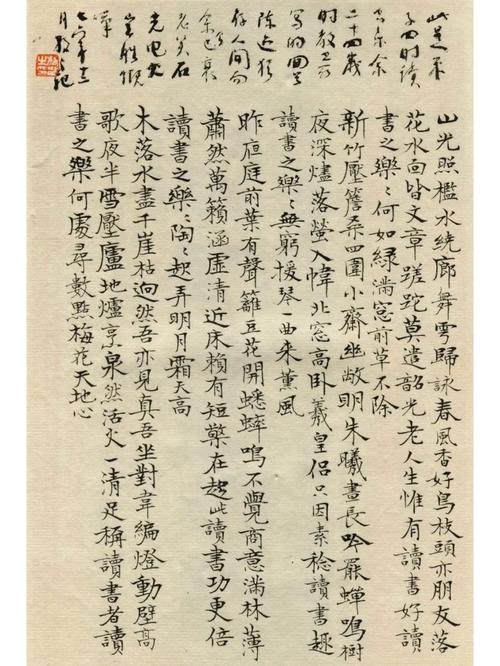 此是朱
子四时讀
書樂余
二十四歲
时教
写的
陈迹犹
存人間而
余已衰
老矣石
火电光
豈勝慨
六年十二
月 記
山光照檻水繞廊舞雩歸詠春風香好鳥枝頭亦朋友落
花水面皆文章蹉跎莫遣韶光老人生惟有讀書好讀
書之樂〻何如綠滿窓前草不除
新竹壓簷桑四圍小齋幽敞明朱曦晝長吟罷蟬鳴樹
夜深燼落螢入幃北窓高卧羲皇侶只因素稔讀書趣
讀書之樂〻無窮援琴一曲来薰風
昨夜庭前葉有聲籬豆花開蟋蟀鳴不覺商意滿林薄
蕭然萬籟涵虛清近床賴有短檠在趁此讀書功更倍
讀書之樂〻陶〻起弄明月霜天高
木落水盡千崖枯迥然吾亦見真吾坐對韋編燈動壁高
歌夜半雪壓廬地爐烹泉然活火一清足稱讀書者讀
書之樂何處尋數點梅花天地心